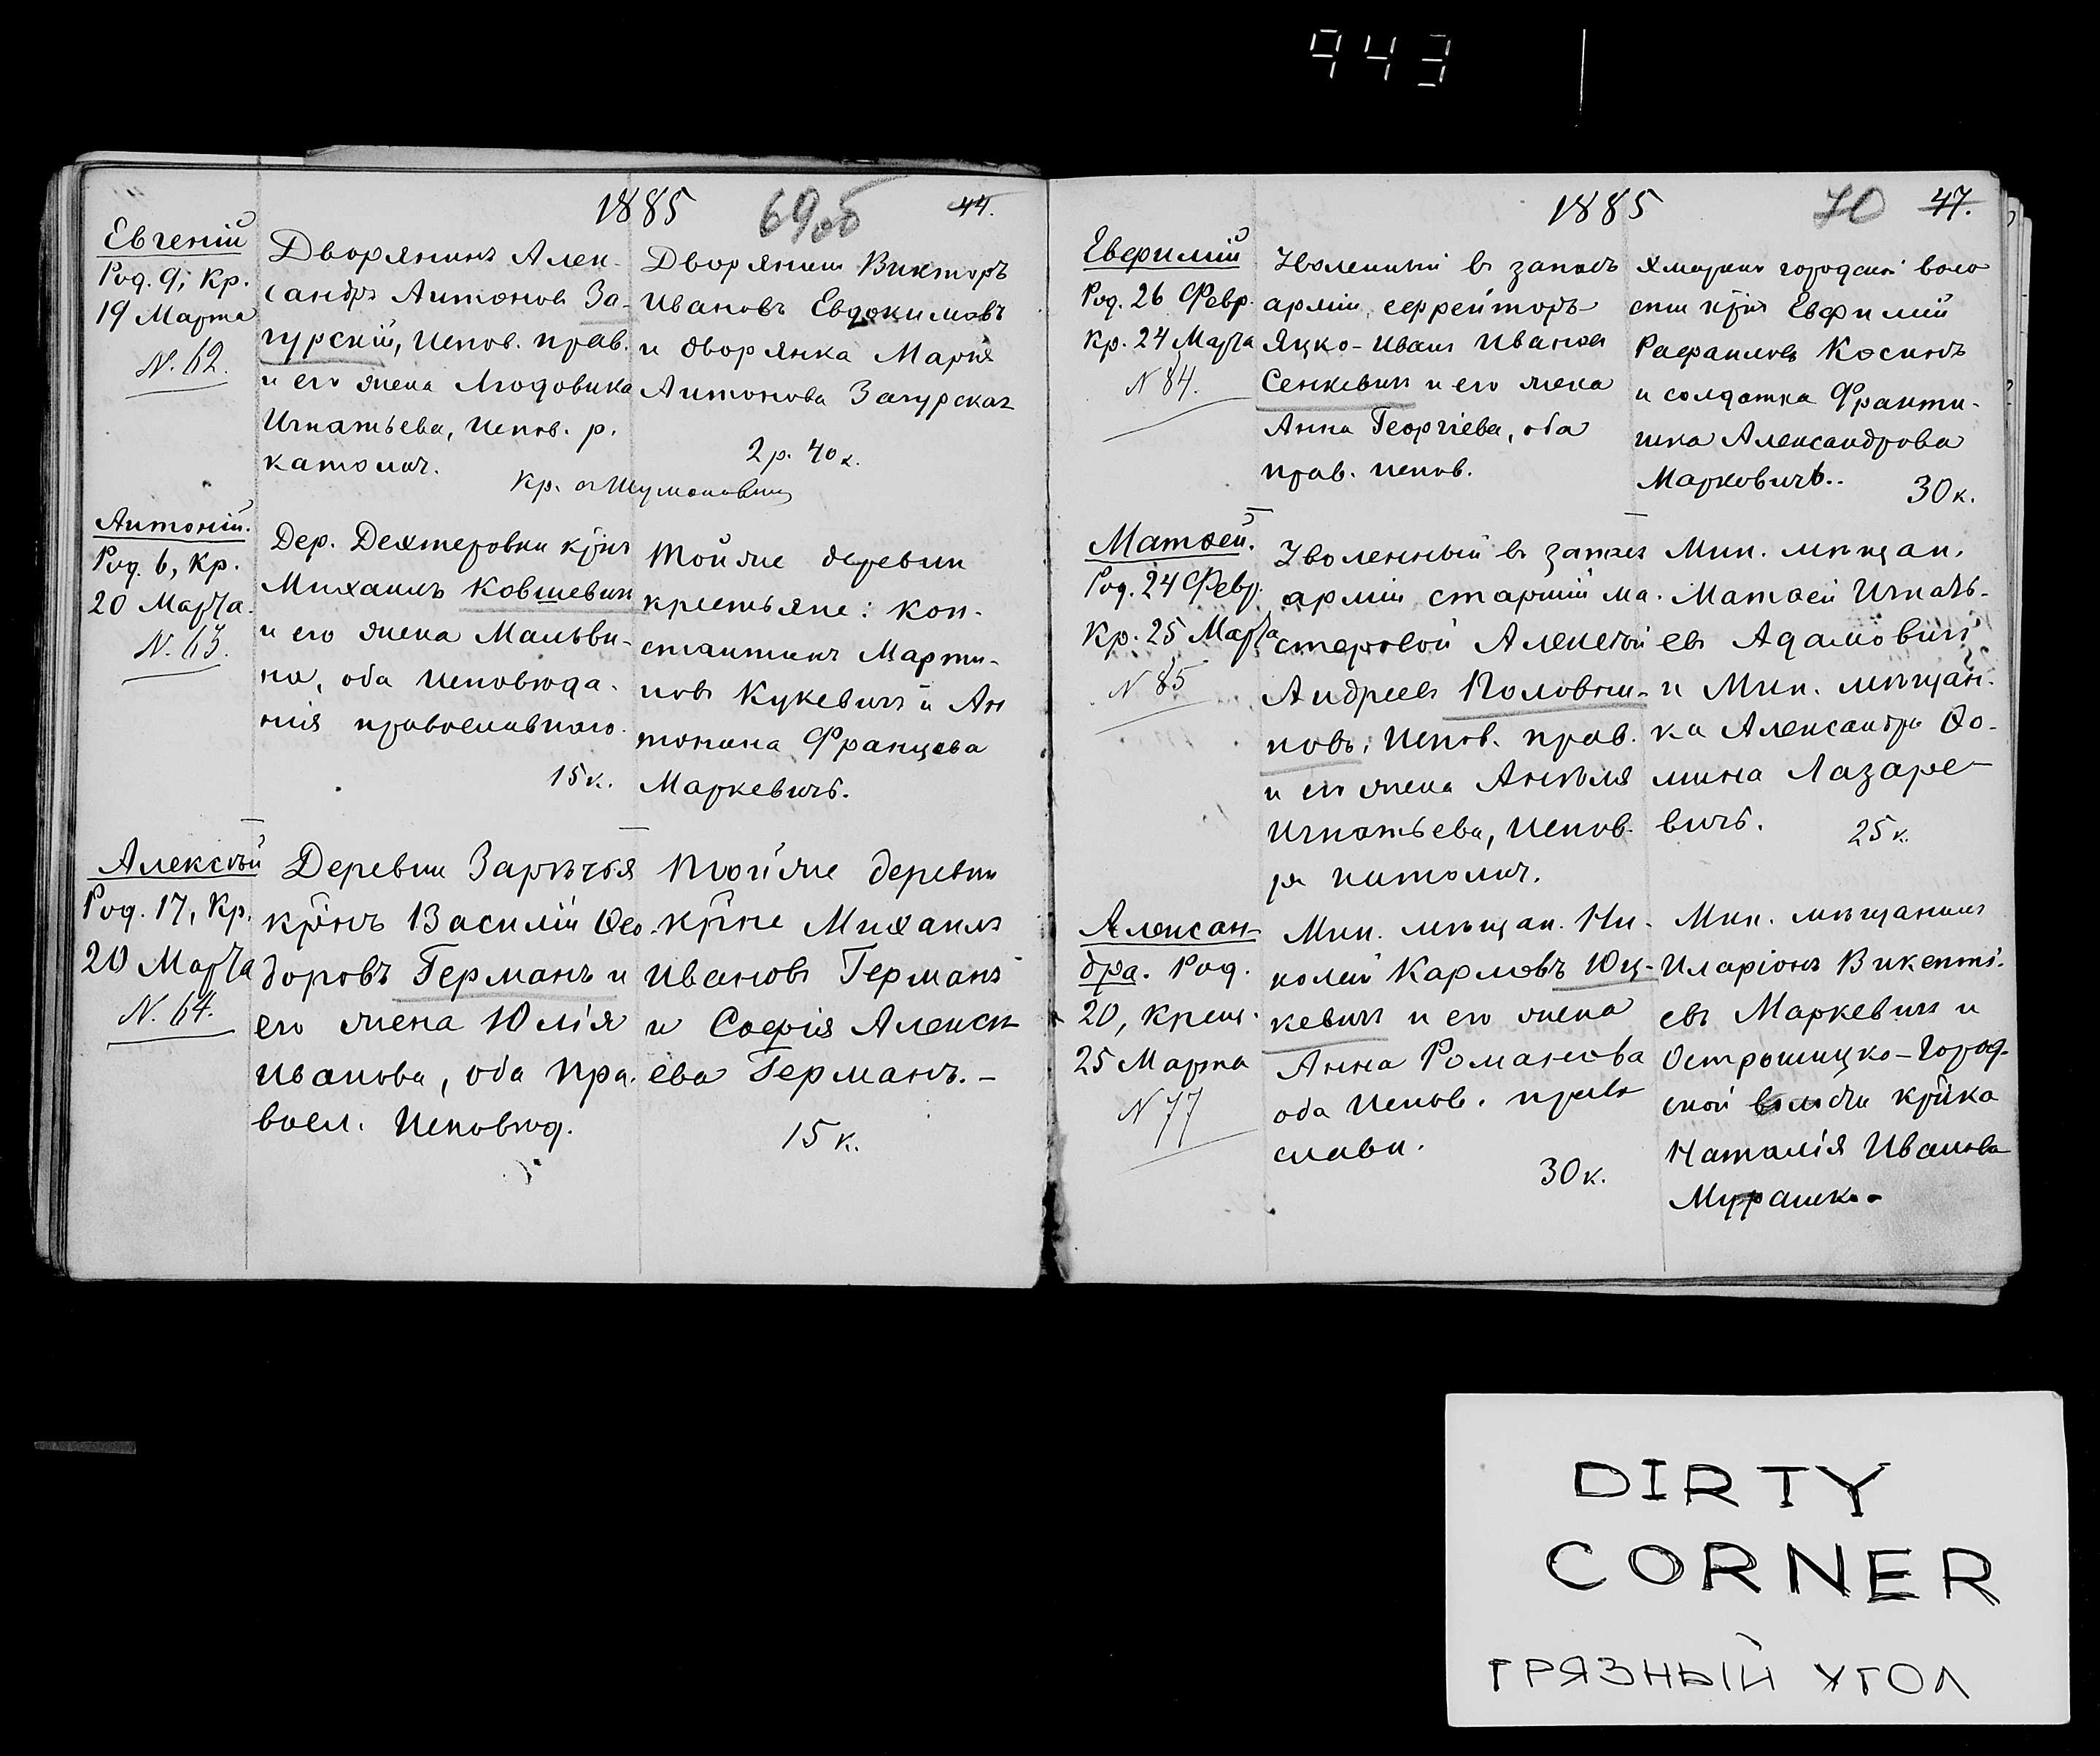 943
1885 69об 44.
Евгеній
Род. 9, Кр.
19 Марта
N. 62.
Дворянинъ Алек-
сандръ Антоновъ За-
гурскій, испов. прав.
и его жена Людовика
Игнатьева, испов. р.
католич.
Дворянинъ Викторъ
Ивановъ Евдокимовъ
и дворянка Марія
Антонова Загурская
2 р. 40 к.
Кр. о. Шумановичъ
Антоній.
Род. 6, Кр.
20 Марта.
N. 63.
Дер. Дехтеровки кр͠нъ
Михаилъ Ковшевичъ
и его жена Мальви-
на, оба исповѣда-
нія православнаго.
15 к.
Той же деревни
крестьяне: Кон-
стантинъ Марти-
новъ Кукевичъ и Ан
тонина Францева
Маркевичъ.
Алексѣй
Род. 17, Кр.
20 Марта
N. 64.
Деревни Зарѣчья
кр͠нъ Василій Ѳео-
доровъ Германъ и
его жена Юлія
Иванова, оба пра-
восл. исповѣд.
Той же деревни
кр͠не Михаилъ
Ивановъ Германъ
и Софія Алексѣ
ева Германъ. -
15 к.
1885 70 47.
Евфимій
Род. 26 Февр.
Кр. 24 Марта
N 84.
Уволенный въ запасъ
арміи, ефрейторъ
Яцко-Иванъ Ивановъ
Сенкевичъ и его жена
Анна Георгіева, оба
прав. испов.
городской воло
сти кр͠нъ Евфимій
Рафаиловъ Косинъ
и солдатка Франти-
шка Александрова
Марковичъ..
30 к.
Матѳей.
Род. 24 Февр.
Кр. 25 Марта
N 85
Уволенный въ запасъ
арміи старшій ма-
стеровой Алексѣй
Андреевъ Половин-
новъ, испов. прав.
и его жена Анѣля
Игнатьева, испов.
р. католич.
Мин. мѣщан.
Матѳей Игнать-
евъ Адамовичъ
и Мин. мѣщан-
ка Александра Ѳо-
мина Лазаре-
вичъ.
25 к.
Алексан-
дра. Род.
20, крещ.
25 Марта
N 77
Мин. мѣщан. Ни-
колай Карловъ Юц-
кевичъ и его жена
Анна Романова
оба испов. право
славн.
30 к.
Мин. мѣщанинъ
Иларіонъ Викенті-
евъ Маркевичъ и
Острошицко-Город-
ской волости кр͠нка
Наталія Иванова
Мурашко-
DIRTY
CORNER
ГРЯЗНЫЙ УГОЛ